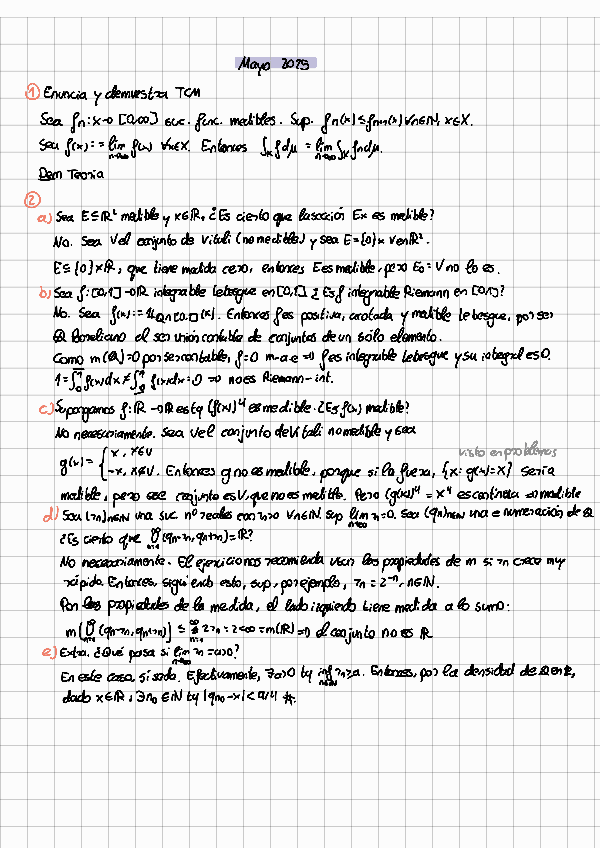 Mayo 2025
① Enuncia y demuestra TCM
Sea fn: X → [0,∞] suc. func. medibles. Sup. fn(x) ≤ fn+1(x) ∀n∈ℕ, x∈X.
Sea f(x) := lim n→∞ fn(x) ∀x∈X. Entonces ∫x f dμ = lim n→∞ ∫x fn dμ.
Dem Teoría
②
a) Sea E ⊆ ℝ² medible y x∈ℝ, ¿Es cierto que la sección Ex es medible?
No. Sea V el conjunto de Vitali (no medible) y sea E = {0} × V en ℝ².
E ⊆ {0}×ℝ, que tiene medida cero, entonces E es medible, pero E₀ = V no lo es.
b) Sea f: [0,1] → ℝ integrable Lebesgue en [0,1] ¿Es f integrable Riemann en [0,1]?
No. Sea f(x) := 1ℚ∩[0,1](x). Entonces f es positiva, acotada y matible Lebesgue, por ser
ℚ Boreliano al ser unión contable de conjuntos de un sólo elemento.
Como m(ℚ)=0 por ser contable, f=0 m-a.e ⇒ f es integrable Lebesgue y su integral es 0.
1 = ∫₀¹ f(x)dx ≠ ∫₀¹ f(x)dx = 0 ⇒ no es Riemann-int.
c) Supongamos f: ℝ → ℝ está (f(x))⁴ es medible. ¿Es f(x) medible?
No necesariamente. Sea V el conjunto de Vitali no medible y sea
visto en problemas
g(x) = { x, x∈V
-x, x∉V. Entonces g no es medible, porque si la fuera, {x: g(x)=x} sería
medible, pero ese conjunto es V, que no es medible. Pero (g(x))⁴ = x⁴ es continua ⇒ medible
d) Sea (rn)n∈ℕ una suc. nº reales con rn>0 ∀n∈ℕ. Sup lim n→∞ rn=0. Sea (qn)n∈ℕ una enumeración de ℚ
¿Es cierto que ∪ n=1 ∞ (qn-rn, qn+rn) = ℝ?
No necesariamente. El ejercicio nos recomienda usar las propiedades de m si rn crece muy
rápido. Entonces, siguiendo esto, sup, por ejemplo, rn = 2⁻ⁿ, n∈ℕ.
Por las propiedades de la medida, el lado izquierdo tiene medida a lo sumo:
m(∪ n=1 ∞ (qn-rn, qn+rn)) ≤ ∑ n=1 ∞ 2rn = 2 < ∞ = m(ℝ) ⇒ el conjunto no es ℝ
e) Extra. ¿Qué pasa si lim n→∞ rn = a>0?
En este caso, sí se da. Efectivamente, ∃a>0 tq inf n∈ℕ rn ≥ a. Entonces, por la densidad de ℚ en ℝ,
dado x∈ℝ, ∃n₀∈ℕ tq |qn₀ - x| < a/4 #.